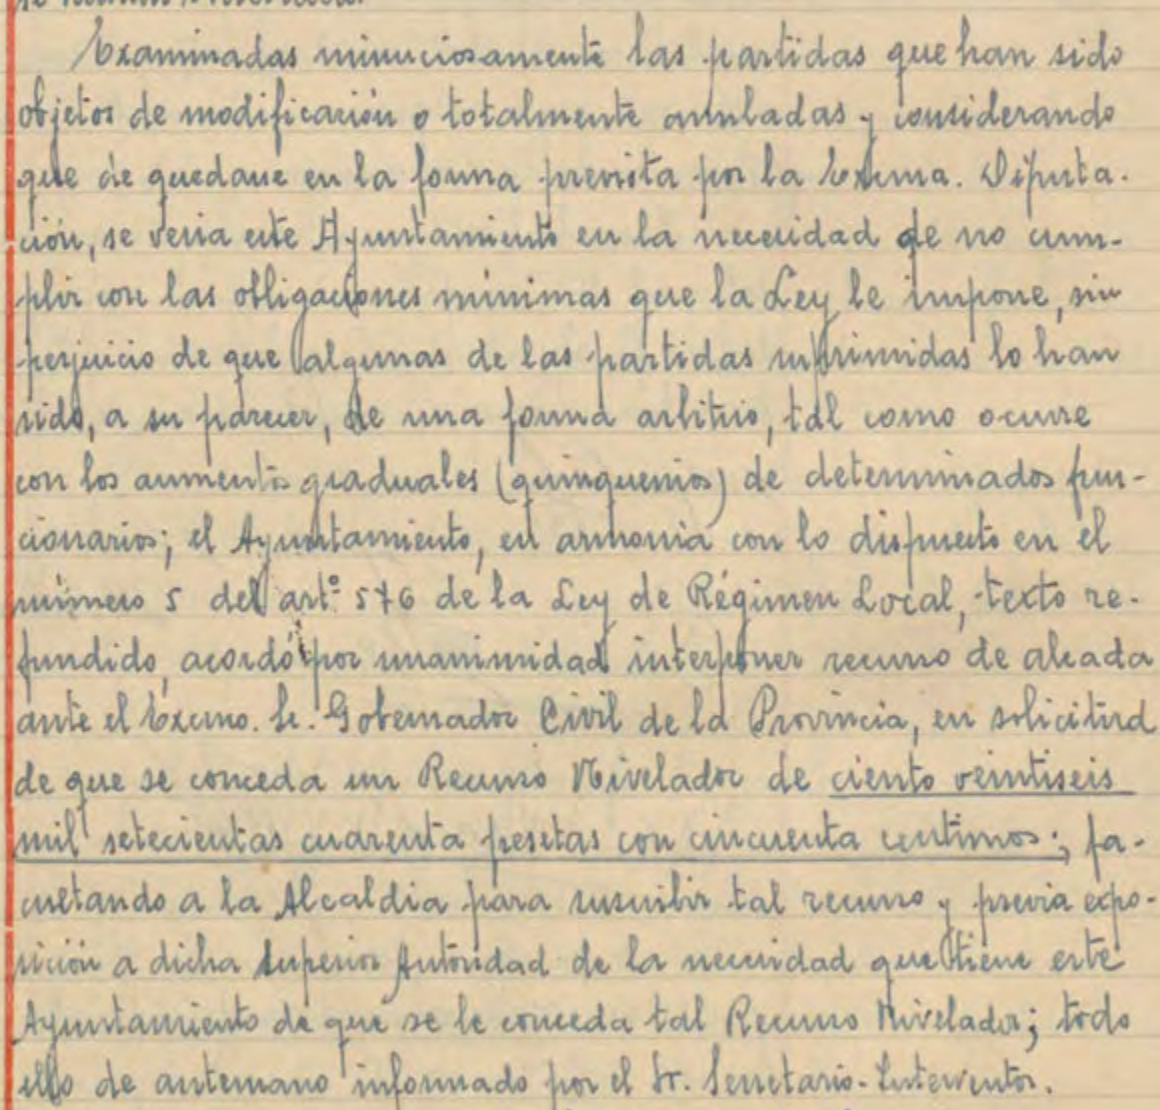 Examinadas minuciosamente las partidas que han sido
objetos de modificación o totalmente anuladas y considerando
que de quedarse en la forma prevista por la Exma. Diputa-
ción, se vería este Ayuntamiento en la necesidad de no cum-
plir con las obligaciones mínimas que la Ley le impone, sin
perjuicio de que algunas de las partidas suprimidas lo han
sido, a su parecer, de una forma arbitrio, tal como ocurre
con los aumentos graduales (quinquenios) de determinados fun-
cionarios; el Ayuntamiento, en armonía con lo dispuesto en el
número 5 del artº 576 de la Ley de Régimen Local, texto re-
fundido, acordó por unanimidad interponer recurso de alzada
ante el Excmo. Sr. Gobernador Civil de la Provincia, en solicitud
de que se conceda un Recurso Nivelador de ciento veintiseis
mil setecientas cuarenta pesetas con cincuenta centimos; fa-
cultando a la Alcaldia para suscribir tal recurso y previa expo-
sición a dicha Superior Autoridad de la necesidad que tiene este
Ayuntamiento de que se le conceda tal Recurso Nivelador; todo
ello de antemano informado por el Sr. Secretario-Interventor.